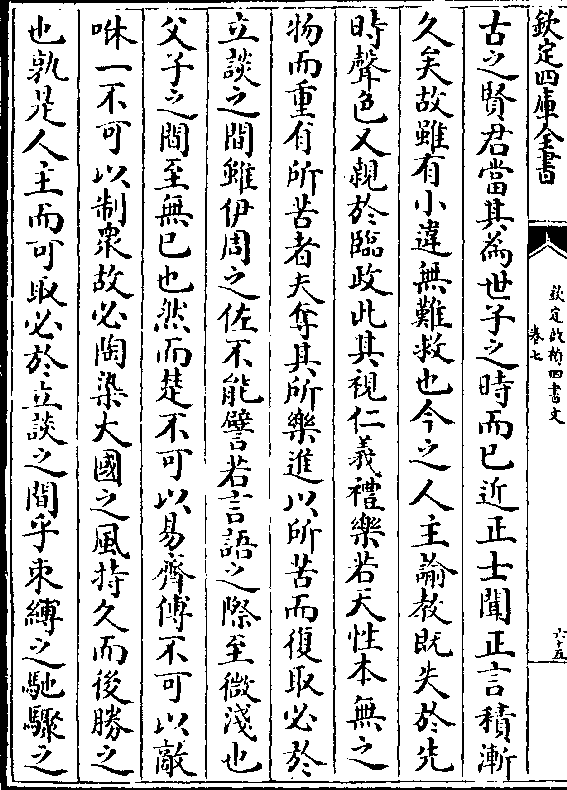 欽定四庫全書
欽定啟禎四書文
卷七
六十五
古之賢君當其為世子之時而已近正士聞正言積漸
久矣故雖有小違無難救也今之人主諭教既失於先
時聲色又親於臨政此其視仁義禮樂若天性本無之
物而重有所苦者夫奪其所樂進以所苦而復取必於
立談之間雖伊周之佐不能譬若言語之際至微淺也
父子之間至無已也然而楚不可以易齊傅不可以敵
咻一不可以制衆故必陶染大國之風持久而後勝之
也孰是人主而可取必於立談之間乎束縛之馳驟之